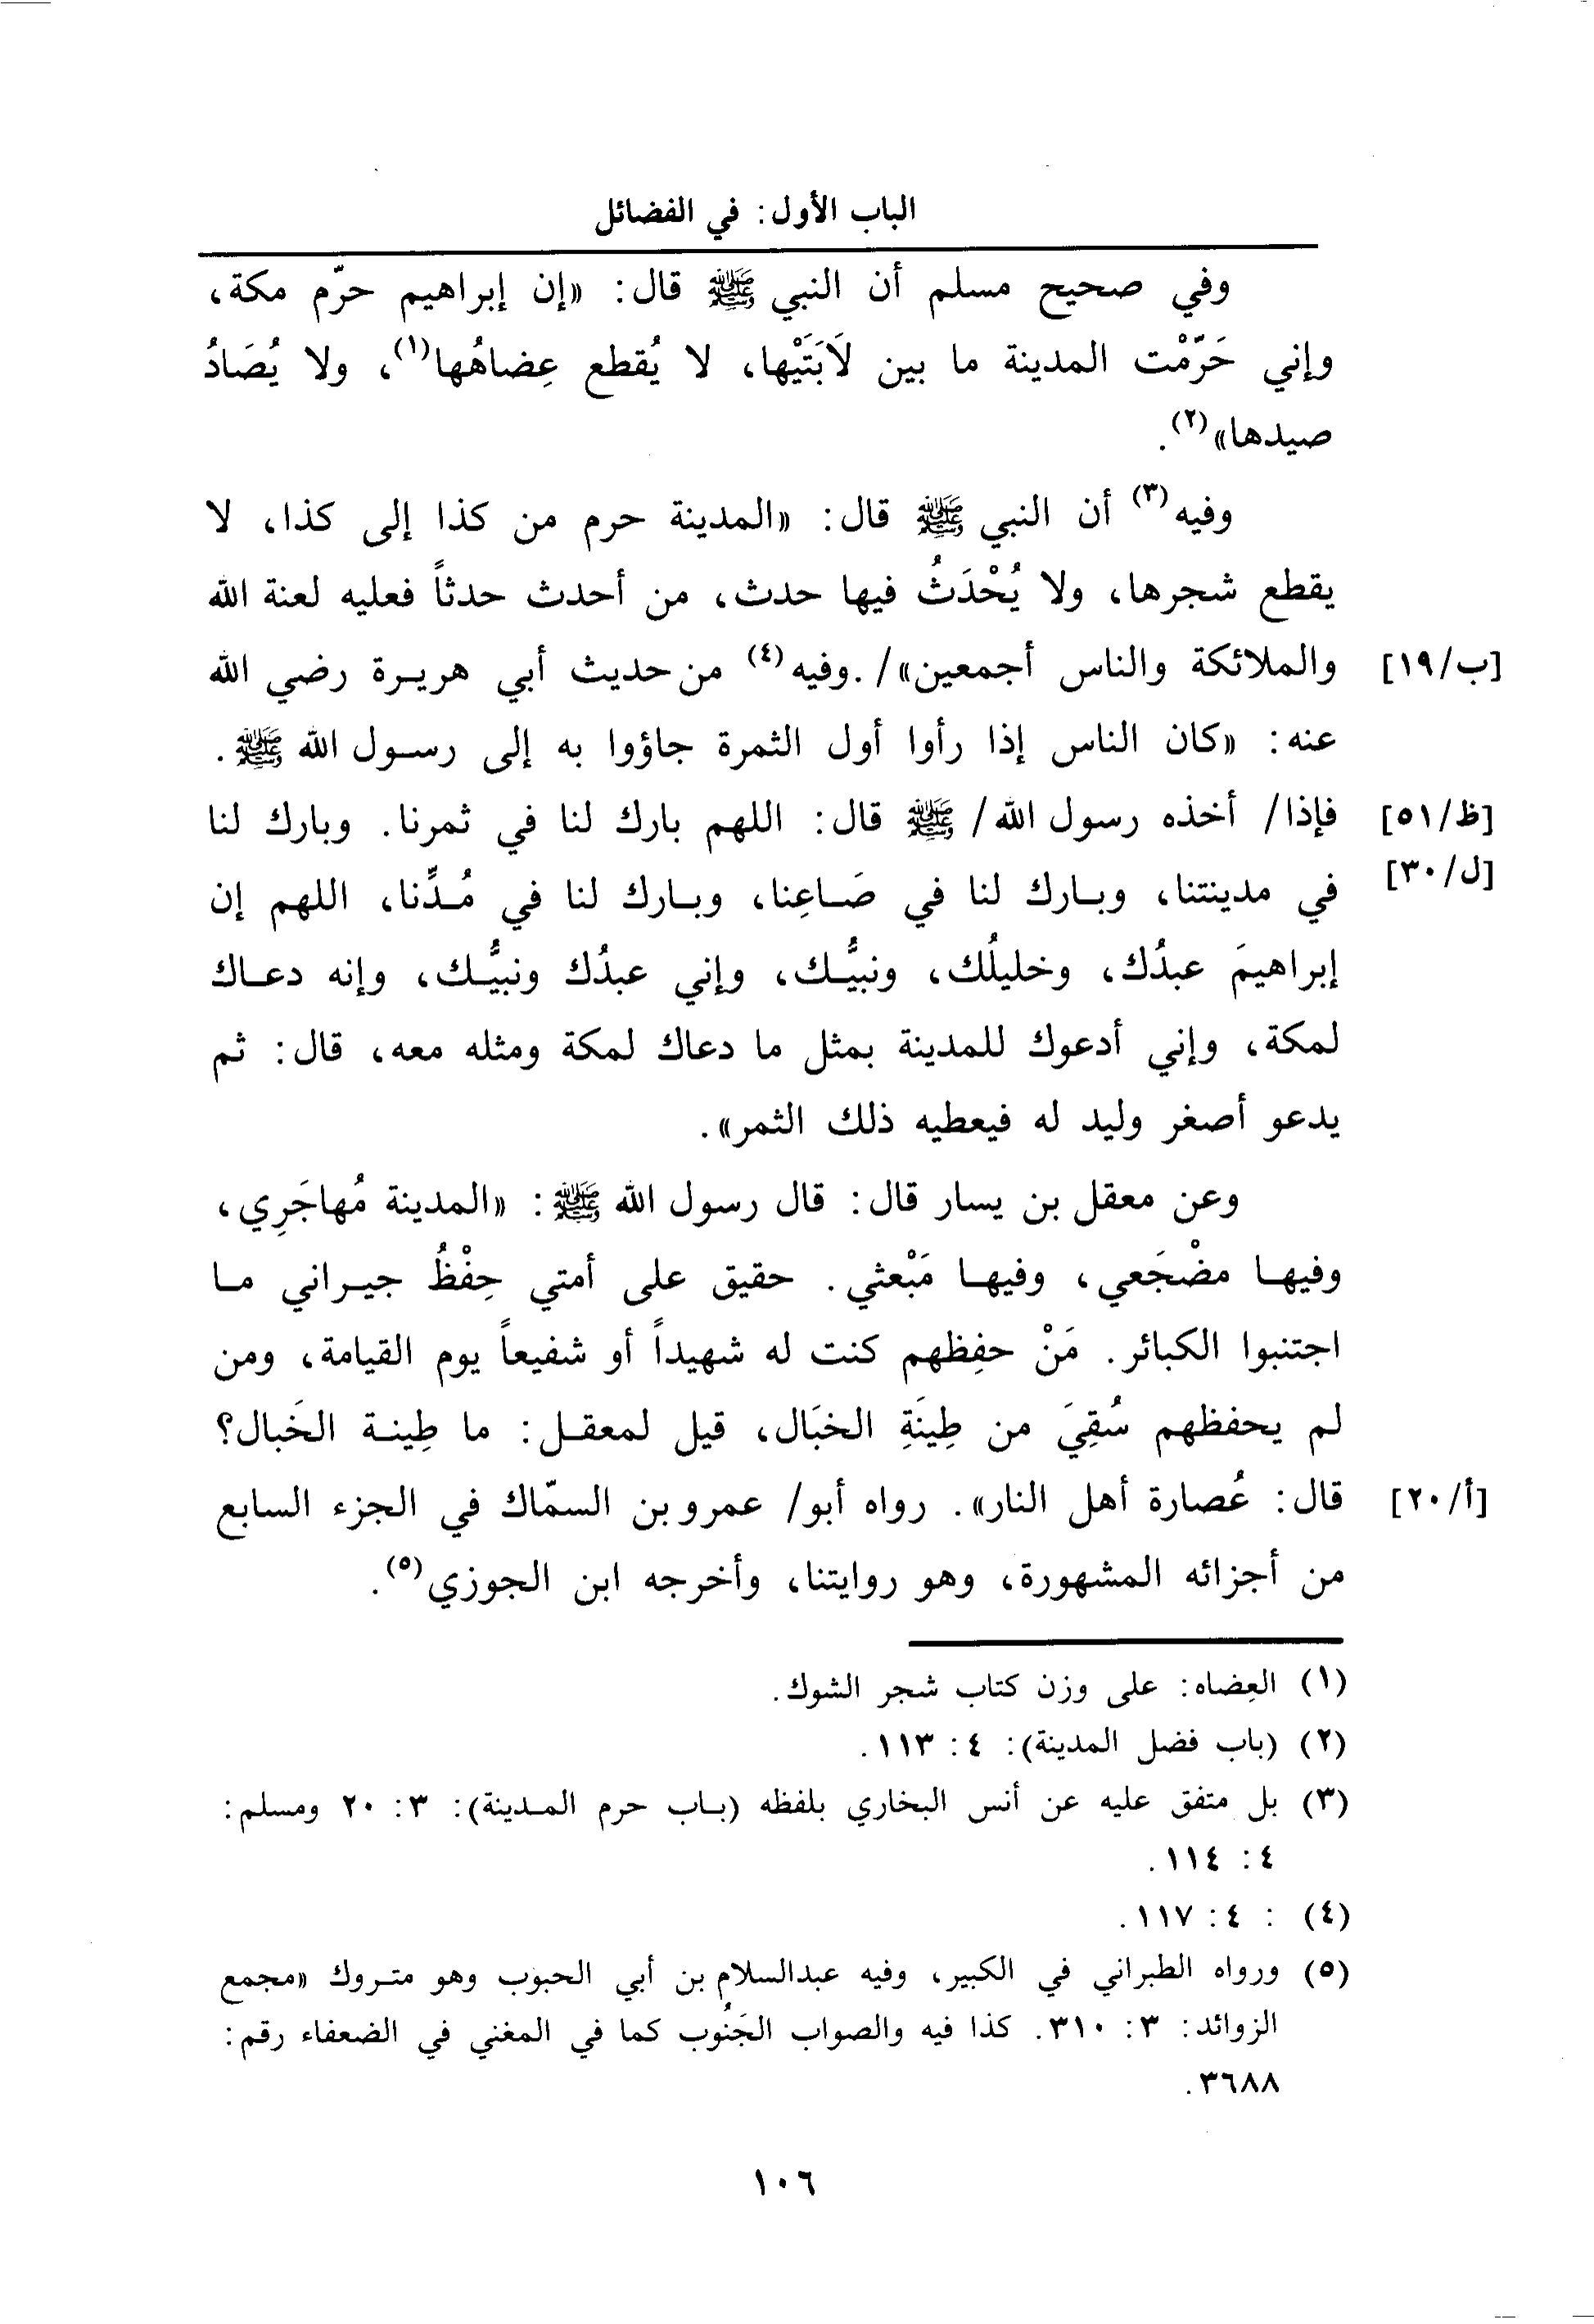 الباب الأول: في الفضائل
وفي صحيح مسلم أن النبي ﷺ قال: «إن إبراهيم حرّم مكة،
وإني حَرَّمْت المدينة ما بين لَابَتَيْها، لا يُقطع عِضاهُها(١)، ولا يُصَادُ
صيدها»(٢).
وفيه(٣) أن النبي ﷺ قال: «المدينة حرم من كذا إلى كذا، لا
يقطع شجرها، ولا يُحْدَثُ فيها حدث، من أحدث حدثاً فعليه لعنة الله
والملائكة والناس أجمعين»/. وفيه(٤) من حديث أبي هريرة رضي الله [ب/١٩]
عنه: «كان الناس إذا رأوا أول الثمرة جاؤوا به إلى رسول الله ﷺ.
فإذا/ أخذه رسول الله/ ﷺ قال: اللهم بارك لنا في ثمرنا. وبارك لنا [ظ/٥١]
[ل/٣٠]
في مدينتنا، وبارك لنا في صَاعِنا، وبارك لنا في مُدِّنا، اللهم إن
إبراهيمَ عبدُك، وخليلُك، ونبيُّك، وإني عبدُك ونبيُّك، وإنه دعاك
لمكة، وإني أدعوك للمدينة بمثل ما دعاك لمكة ومثله معه، قال: ثم
يدعو أصغر وليد له فيعطيه ذلك الثمر».
وعن معقل بن يسار قال: قال رسول الله ﷺ: «المدينة مُهاجَرِي،
وفيها مضْجَعي، وفيها مَبْعثي. حقيق على أمتي حِفْظُ جيراني ما
اجتنبوا الكبائر. مَنْ حفِظهم كنت له شهيداً أو شفيعاً يوم القيامة، ومن
لم يحفظهم سُقِيَ من طِينَةِ الخبَال، قيل لمعقل: ما طِينة الخَبال؟
قال: عُصارة أهل النار». رواه أبو/ عمرو بن السمّاك في الجزء السابع [أ/٢٠]
من أجزائه المشهورة، وهو روايتنا، وأخرجه ابن الجوزي(٥).
(١) العِضاه: على وزن كتاب شجر الشوك.
(٢) (باب فضل المدينة): ٤: ١١٣.
(٣) بل متفق عليه عن أنس البخاري بلفظه (باب حرم المدينة): ٣: ٢٠ ومسلم:
٤: ١١٤.
(٤) : ٤: ١١٧.
(٥) ورواه الطبراني في الكبير، وفيه عبدالسلام بن أبي الحبوب وهو متروك «مجمع
الزوائد: ٣: ٣١٠. كذا فيه والصواب الجَنُوب كما في المغني في الضعفاء رقم:
٣٦٨٨.
١٠٦